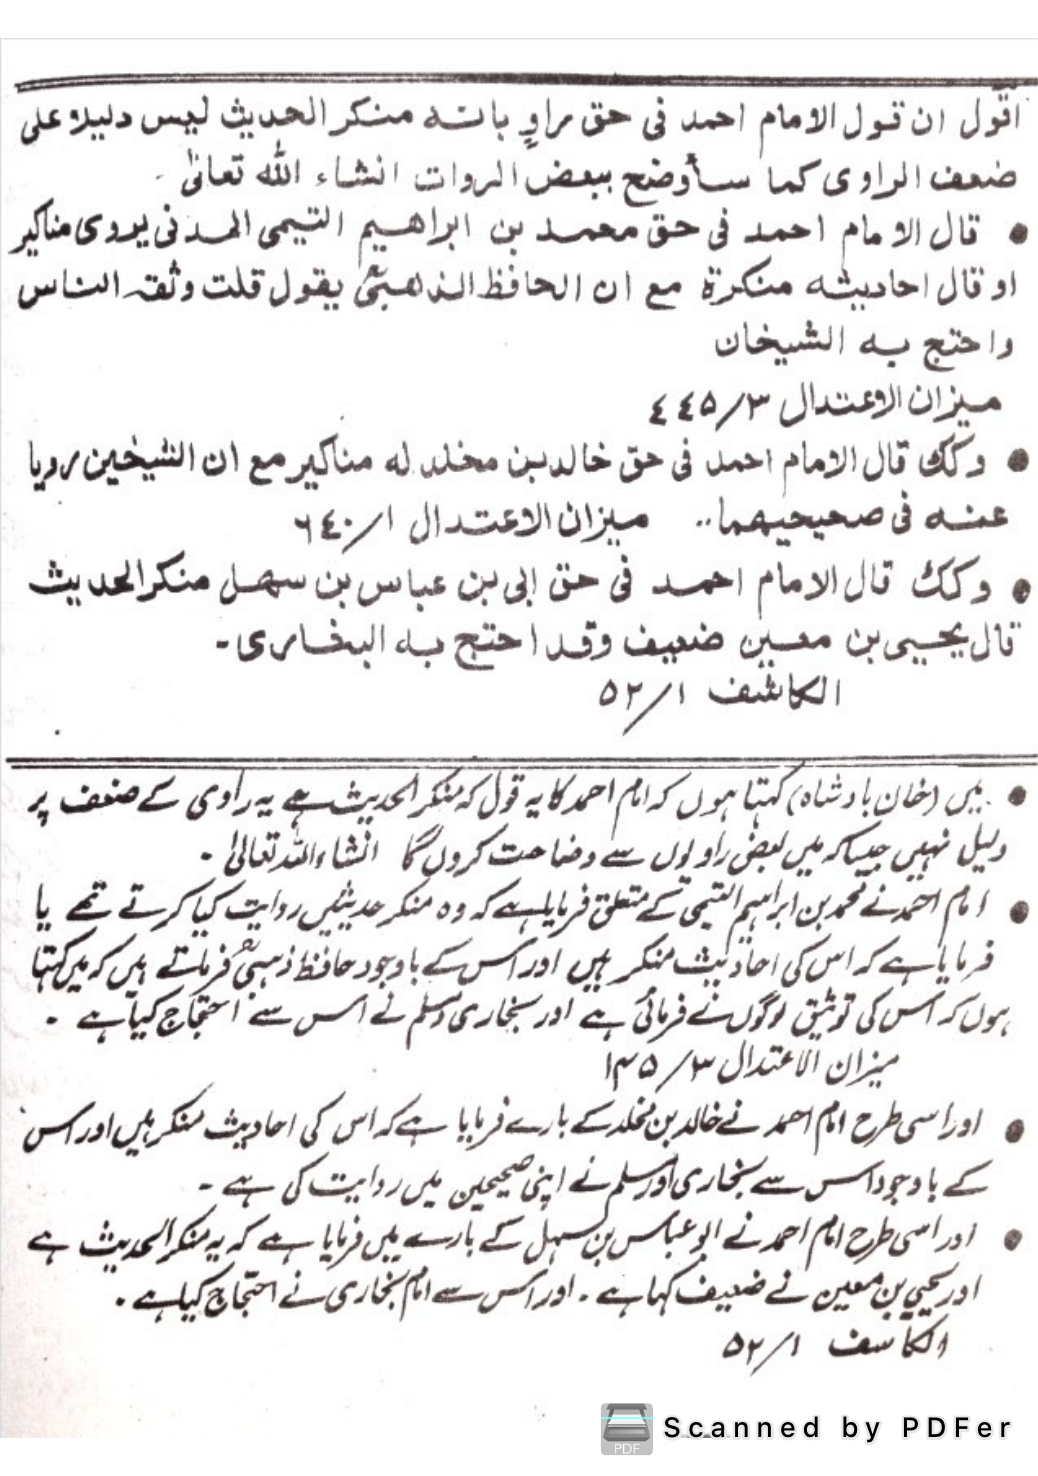 اقول ان قول الامام احمد فی حق راوٍ بانه منکر الحدیث لیس دلیلا علی
ضعف الراوی کما سأوضح ببعض الروات انشاء الله تعالیٰ .
● قال الامام احمد فی حق محمد بن ابراهیم التیمی المدنی یروی مناکیر
او قال احادیثه منکرة مع ان الحافظ الذهبیؒ یقول قلت وثقه الناس
واحتج به الشیخان
میزان الاعتدال ۳/٤٤۵
● وکك قال الامام احمد فی حق خالد بن مخلد له مناکیر مع ان الشیخین رویا
عنه فی صحیحیهما.. میزان الاعتدال ۱/٦٤۰
● وکك قال الامام احمد فی حق ابی بن عباس بن سهل منکر الحدیث
قال یحییٰ بن معین ضعیف وقد احتج به البخاری -
الکاشف ۱/۵۲
● میں (خان بادشاہ) کہتا ہوں کہ امام احمد کا یہ قول کہ منکر الحدیث ہے یہ راوی کے ضعف پر
دلیل نہیں جیسا کہ میں بعض راویوں سے وضاحت کروں گا انشاءاللہ تعالیٰ -
● امام احمدؒ نے محمد بن ابراہیم التیمی کے متعلق فرمایا ہے کہ وہ منکر حدیثیں روایت کیا کرتے تھے یا
فرمایا ہے کہ اس کی احادیث منکر ہیں اور اس کے باوجود حافظ ذہبیؒ فرماتے ہیں کہ میں کہتا
ہوں کہ اس کی توثیق لوگوں نے فرمائی ہے اور بخاری ومسلم نے اس سے احتجاج کیا ہے -
میزان الاعتدال ۳/۱۳۵
● اور اسی طرح امام احمد نے خالد بن مخلد کے بارے فرمایا ہے کہ اس کی احادیث منکر ہیں اور اس
کے باوجود اس سے بخاری اور مسلم نے اپنی صحیحین میں روایت کی ہے -
● اور اسی طرح امام احمد نے ابو عباس بن سہل کے بارے میں فرمایا ہے کہ یہ منکر الحدیث ہے
اور یحییٰ بن معین نے ضعیف کہا ہے - اور اس سے امام بخاری نے احتجاج کیا ہے -
الکاسف ۱/۵۲
PDF Scanned by PDFer